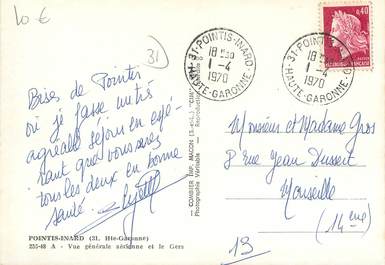 10 €
31
31-POINTIS-INARD
18 H30
1 - 4
1970
HAUTE-GARONNE
31-POINTIS-INARD
18 H30
1 - 4
1970
HAUTE-GARONNE
0,40
Bises de Pointis
où je passe un très
agréable séjour en espé-
rant que vous serez
tous les deux en bonne
santé.
COMBIER IMP. MACON (S.-et-L.) "CIM"
Photographie Véritable - Reproduction
Monsieur et Madame Gros
8 rue Jean Dussert
Marseille
(14ème)
13
POINTIS-INARD (31, Hte-Garonne)
255-48 A - Vue générale aérienne et le Gers